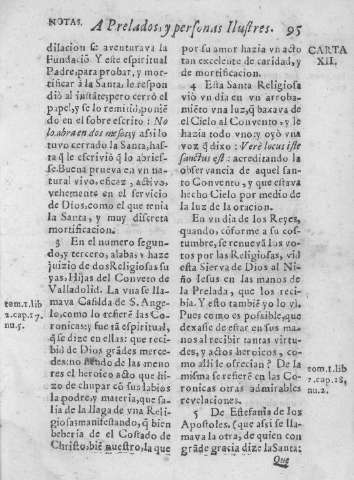 NOTAS. A Prelados, y personas Ilustres. 95
dilacion se aventurava la
Fundaciõ. Y este espiritual
Padre, para probar, y mor-
tificar à la Santa, le respon
diò al instãte; pero cerrò el
papel, y se lo remitiò, ponié
do en el sobre escrito: No
lo abra en dos meses; y assi lo
tuvo cerrado la Santa, has-
ta q̃ le escriviò q̃ lo abries-
se. Buena prueva en vn na-
tural vivo, eficaz, activo,
vehemente en el servicio
de Dios, como el que tenia
la Santa, y muy discreta
mortificacion.
3 En el numero segun-
do, y tercero, alaba, y haze
juizio de dos Religiosas su
yas, Hijas del Conveto de
Valladolid. La vna se lla-
mava Casilda de S. Ange-
lo, como lo refierẽ las Co-
ronicas; y fue tã espiritual,
q̃ se dize en ellas: que reci-
biò de Dios grãdes merce-
des: no siendo de las meno
res el heroico acto que hi-
zo de chupar cõ sus labios
la podre, y materia, que sa-
lia de la llaga de vna Reli-
giosa: manifestando, q̃ bien
bebería de el Costado de
Christo, biẽ nuestro, la que
tom. 1. lib
2. cap. 17.
nu. 5.
por su amor hazia vn acto
tan excelente de caridad, y
de mortificacion.
4 Esta Santa Religiosa
viò vn dia en vn arroba-
miẽto vna luz, q̃ baxava de
el Cielo al Convento, y le
hazia todo vno; y oyò vna
voz q̃ dixo: Verè locus iste
sanctus est: acreditando la
observancia de aquel san-
to Convento, y que estava
hecho Cielo por medio de
la luz de la oracion.
En vn dia de los Reyes,
quando, cõforme a su cos-
tumbre, se renuevã los vo-
tos por las Religiosas, viò
esta Sierva de Dios al Ni-
ño Iesus en las manos de
la Prelada, que los reci-
bia. Y esto tambiẽ yo lo vì.
Pues como es possible, que
dexasse de estar en sus ma-
nos al recibir tantas virtu-
des, y actos heroicos, co-
mo alli le ofrecian? De la
misma se refierẽ en las Co-
ronicas otras admirables
revelaciones.
5 De Estefania de los
Apostoles. (que assi se lla-
mava la otra, de quien con
grãde gracia dize la Santa:
Que
CARTA
XII.
tom. 1. lib
2. cap. 18,
nu. 2.